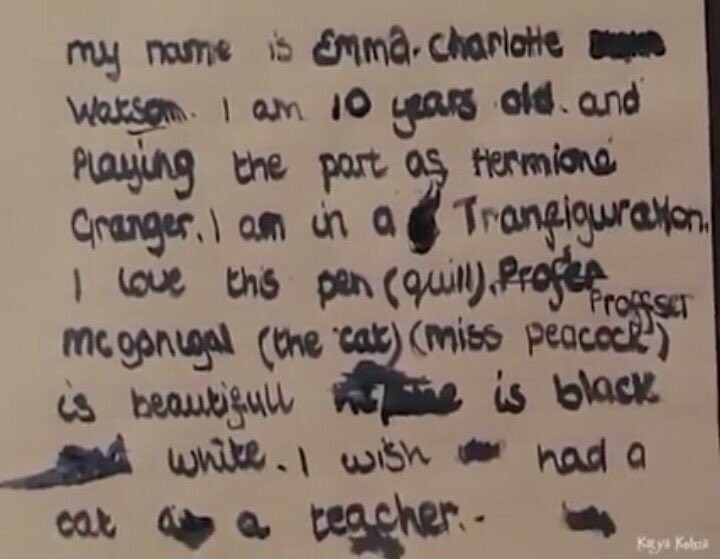 my name is Emma. Charlotte
Watson. I am 10 years old. and
Playing the part as Hermione
Granger. I am in a Tranfiguration.
I love this pen (quill). Profer
Proffser
mcgonigal (the cat) (miss peacock)
is beautifull is black
white. I wish had a
cat a teacher.-
Katya Kolna